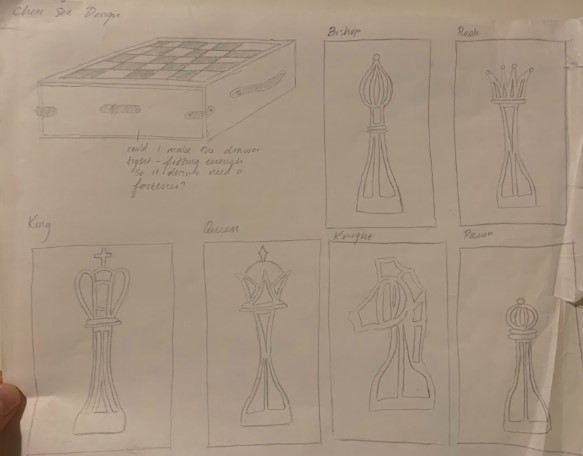 Chess Set Design
Bishop
Rook
could I make the drawer
tight-fitting enough
so it doesn't need a
fastener?
King
Queen
Knight
Pawn